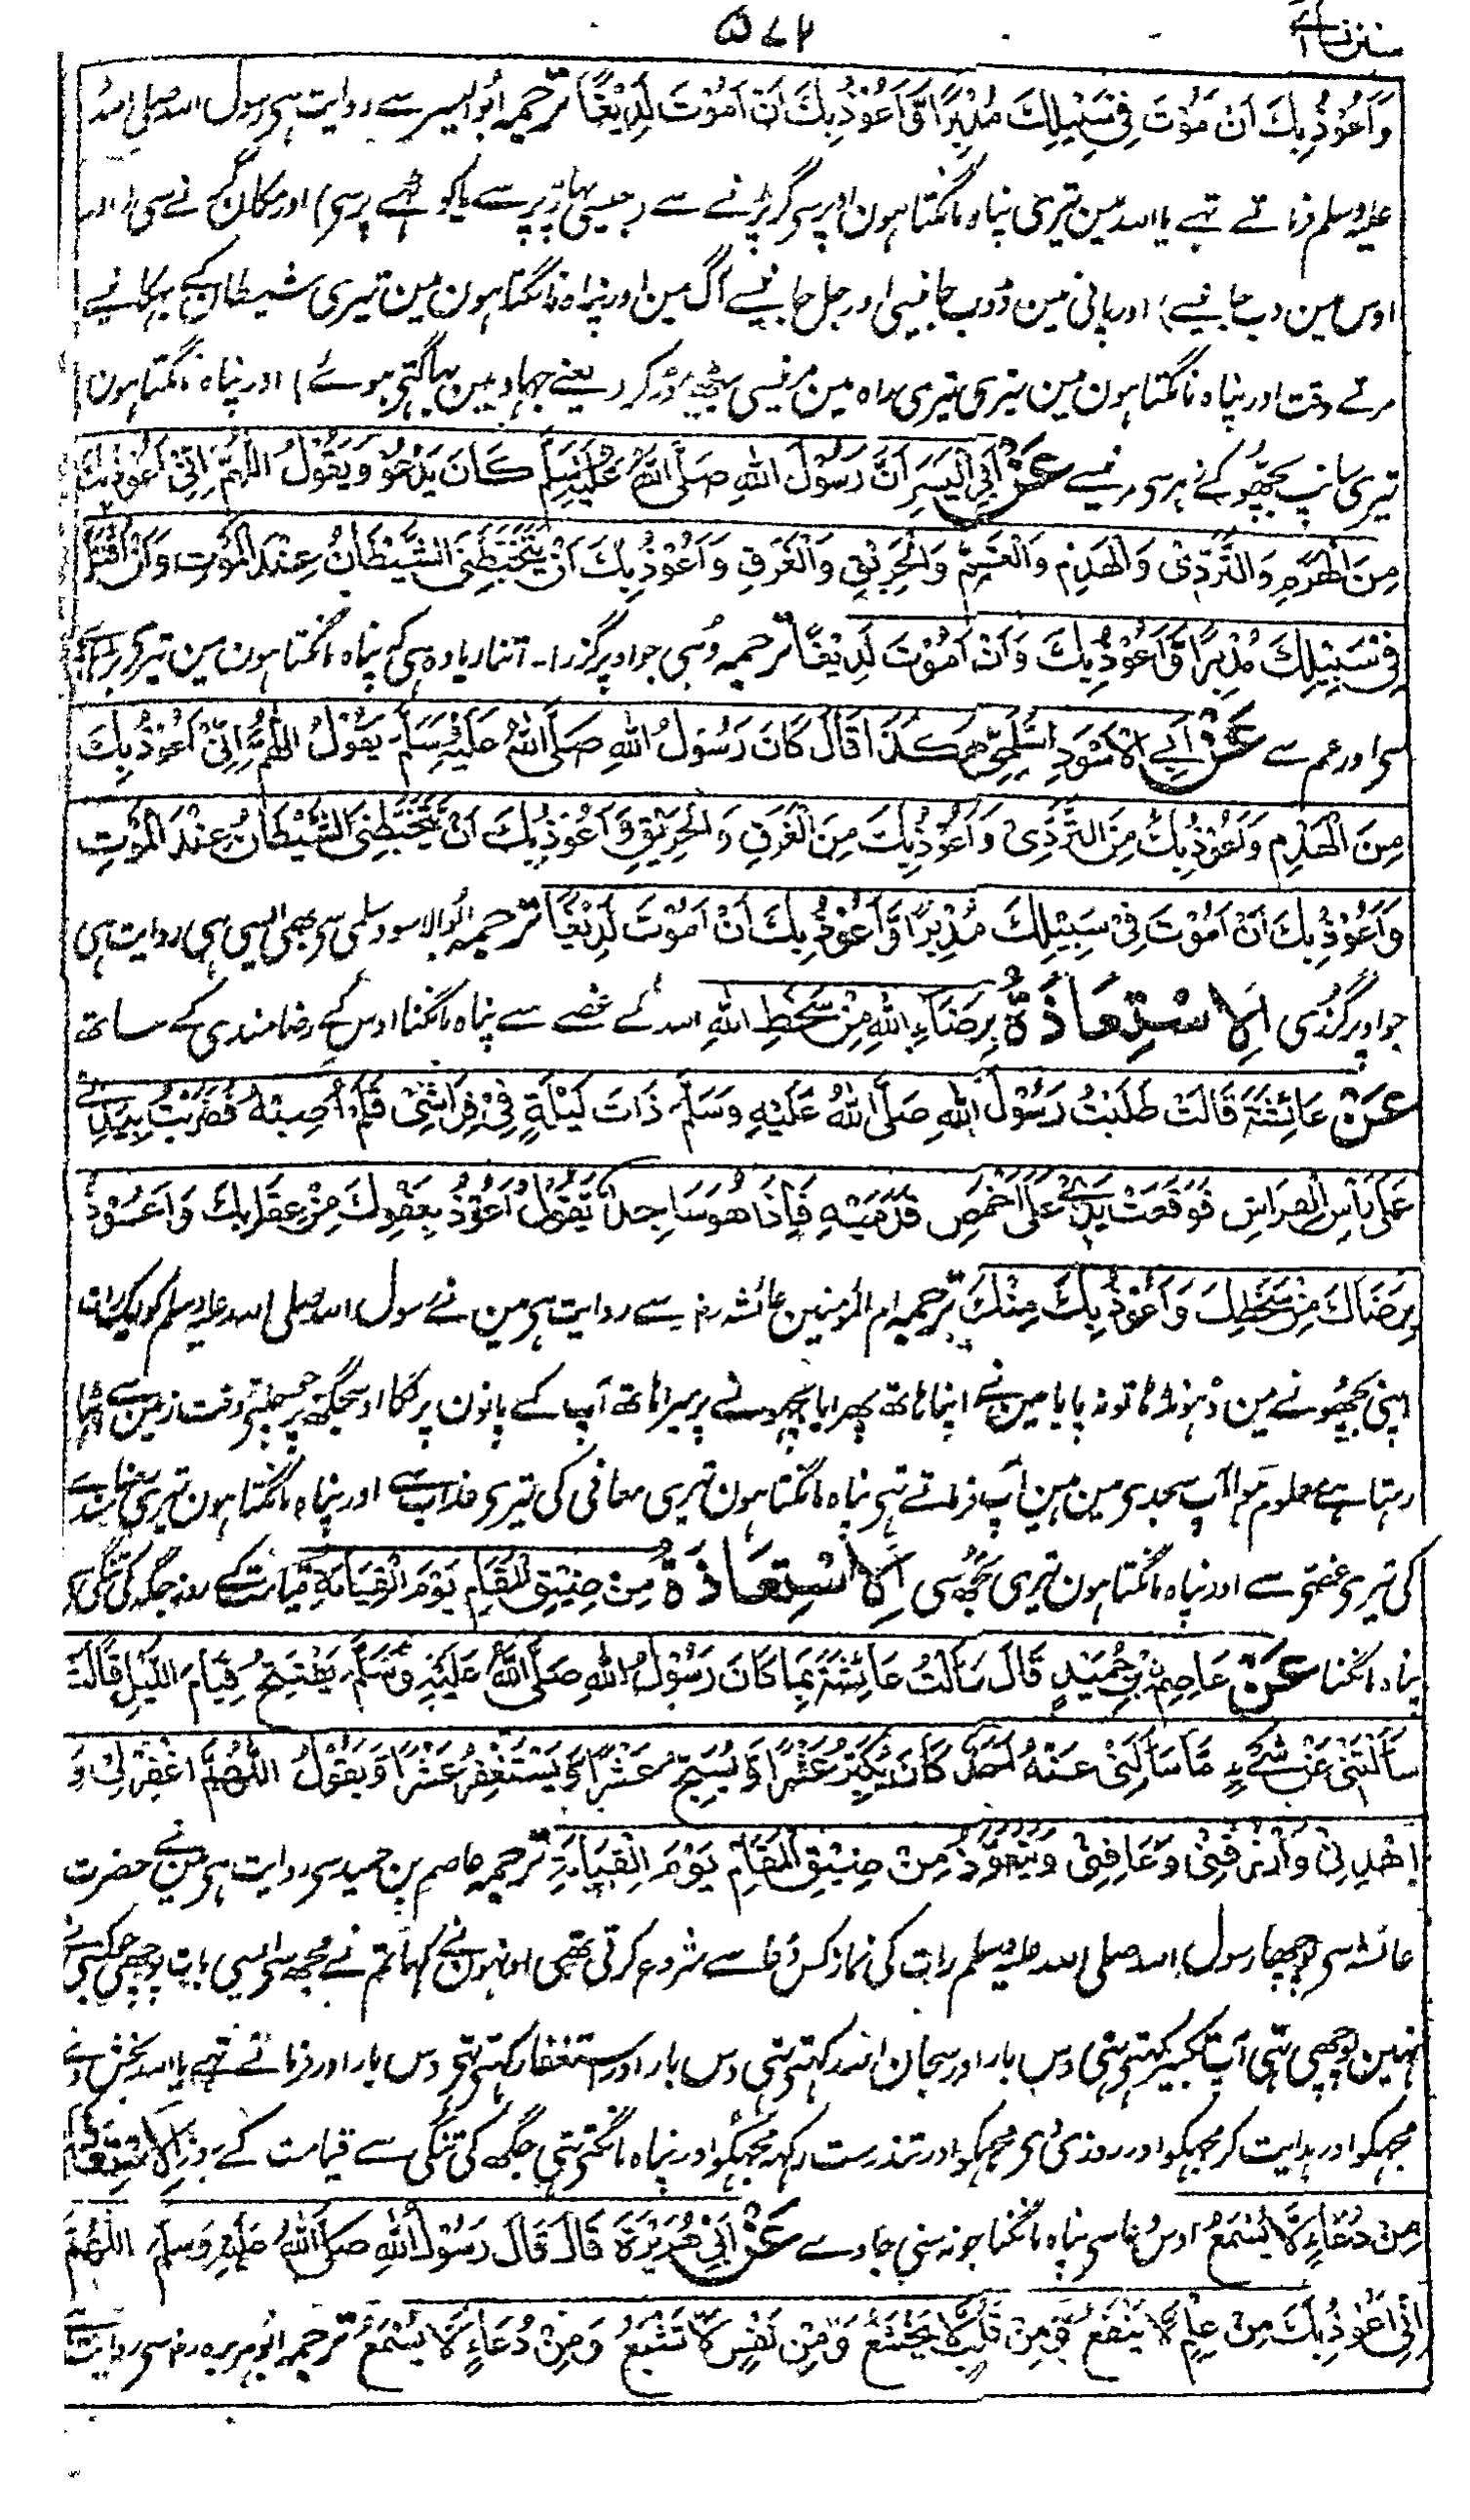 سنن نسائی
۵۷۴
وَاَعُوْذُ بِكَ اَنْ مَوُتَ فِیْ سَبِیْلِكَ مُدْبِرًا وَّاَعُوْذُ بِكَ اَنْ اَمُوْتَ لَدِیْغًا ترجمہ ابو الیسر سے روایت ہی رسول اللہ صلی اللہ
علیہ وسلم فرماتے تہے یا اللہ مین تیری پناہ مانگتا ہون اوپر سی گر پڑنے سے (جیسی پہاڑ پر سے یا کوٹھے پر سی) اور مکان گرنے سی (اور
اوس مین دب جانیسے) اور پانی مین ڈوب جانیسی اور جل جانیسے آگ مین اور پناہ مانگتا ہون مین تیری شیطان کے بہکانیسے
مرتے وقت اور پناہ مانگتا ہون مین تیری تیری راہ مین مرنیسی پیٹھ موڑ کر (یعنے جہاد مین بہاگتی ہوئے) اور پناہ مانگتا ہون
تیری سانپ بچھو کے زہر سی مرنیسے عَنْ اَبِی الْیَسَرِ اَنَّ رَسُوْلَ اللهِ صَلَّی اللهُ عَلَیْهِ وَسَلَّمَ كَانَ یَدْعُوْ وَیَقُوْلُ اللّٰهُمَّ اِنِّیْ اَعُوْذُ بِكَ
مِنَ الْهَرَمِ وَالتَّرَدِّیْ وَالْهَدْمِ وَالْغَمِّ وَالْحَرِیْقِ وَالْغَرَقِ وَاَعُوْذُ بِكَ اَنْ یَّتَخَبَّطَنِیَ الشَّیْطَانُ عِنْدَ الْمَوْتِ وَاَنْ اُقْتَلَ
فِیْ سَبِیْلِكَ مُدْبِرًا وَّاَعُوْذُ بِكَ وَاَنْ اَمُوْتَ لَدِیْغًا ترجمہ وہی جو اوپر گزرا۔ اتنا زیادہ ہی کہ پناہ مانگتا ہون مین تیری بڑہاپے
سی اور غم سے عَنْ اَبِی الْاَسْوَدِ السُّلَمِیِّ هٰكَذَا قَالَ كَانَ رَسُوْلُ اللهِ صَلَّی اللهُ عَلَیْهِ وَسَلَّمَ یَقُوْلُ اللّٰهُمَّ اِنِّیْ اَعُوْذُ بِكَ
مِنَ الْهَدْمِ وَاَعُوْذُ بِكَ مِنَ التَّرَدِّیْ وَاَعُوْذُ بِكَ مِنَ الْغَرَقِ وَالْحَرِیْقِ وَاَعُوْذُ بِكَ اَنْ یَّتَخَبَّطَنِیَ الشَّیْطَانُ عِنْدَ الْمَوْتِ
وَاَعُوْذُ بِكَ اَنْ اَمُوْتَ فِیْ سَبِیْلِكَ مُدْبِرًا وَّاَعُوْذُ بِكَ اَنْ اَمُوْتَ لَدِیْغًا ترجمہ ابو الاسود سلمی سی بھی ایسی ہی روایت ہی
جو اوپر گزری اَلْاِسْتِعَاذَةُ بِرِضَاءِ اللهِ مِنْ سَخَطِ اللهِ اللہ کے غصے سے پناہ مانگنا اوس کے رضامندی کے ساتھ
عَنْ عَائِشَةَ قَالَتْ طَلَبْتُ رَسُوْلَ اللهِ صَلَّی اللهُ عَلَیْهِ وَسَلَّمَ ذَاتَ لَیْلَةٍ فِیْ فِرَاشِیْ فَلَمْ اُصِبْهُ فَضَرَبْتُ بِیَدِیْ
عَلٰی رَاْسِ الْفِرَاشِ فَوَقَعَتْ یَدِیْ عَلٰی اَخْمَصِ قَدَمَیْهِ فَاِذَا هُوَ سَاجِدٌ یَقُوْلُ اَعُوْذُ بِعَفْوِكَ مِنْ عِقَابِكَ وَاَعُوْذُ
بِرِضَاكَ مِنْ سَخَطِكَ وَاَعُوْذُ بِكَ مِنْكَ ترجمہ ام المؤمنین عائشہ رض سے روایت ہی مین نے رسول اللہ صلی اللہ علیہ وسلم کو ایک رات
اپنی بچھونے مین ڈہونڈا تو نہ پایا مین نے اپنا ہاتھ پھرایا بچھونے پر میرا ہاتھ آپ کے پانون پر لگا اوسجگھ پر جو چلتے وقت زمین سے اٹھا
رہتا ہے معلوم ہوا آپ سجدی مین ہین آپ فرماتے تہی پناہ مانگتا ہون تیری معافی کی تیری عذاب سے اور پناہ مانگتا ہون تیری رضامندی
کی تیری غصی سے اور پناہ مانگتا ہون تیری تجھ سی اَلْاِسْتِعَاذَةُ مِنْ ضِیْقِ الْمَقَامِ یَوْمَ الْقِیَامَةِ قیامت کے روز جگہ کی تنگی
پناہ مانگنا عَنْ عَاصِمِ بْنِ حُمَیْدٍ قَالَ سَاَلْتُ عَائِشَةَ بِمَا كَانَ رَسُوْلُ اللهِ صَلَّی اللهُ عَلَیْهِ وَسَلَّمَ یَفْتَتِحُ قِیَامَ اللَّیْلِ قَالَتْ
سَاَلْتَنِیْ عَنْ شَیْءٍ مَّا سَاَلَنِیْ عَنْهُ اَحَدٌ كَانَ یُكَبِّرُ عَشْرًا وَّیُسَبِّحُ عَشْرًا وَّیَسْتَغْفِرُ عَشْرًا وَّیَقُوْلُ اللّٰهُمَّ اغْفِرْ لِیْ وَ
اهْدِنِیْ وَارْزُقْنِیْ وَعَافِنِیْ وَیَتَعَوَّذُ مِنْ ضِیْقِ الْمَقَامِ یَوْمَ الْقِیَامَةِ ترجمہ عاصم بن حمید سی روایت ہی مین نے حضرت
عائشہ سی پوچھا رسول اللہ صلی اللہ علیہ وسلم رات کی نماز کس دعا سے شروع کرتی تھی اونہون نے کہا تم نے مجھ سی ایسی بات پوچھی جو کسی نے
نہین پوچھی تہی آپ تکبیر کہتی تہی دس بار اور سبحان اللہ کہتی تہی دس بار اور استغفار کہتی تہی دس بار اور فرماتے تہے یا اللہ بخش دے
مجہکو اور ہدایت کر مجہکو اور روزی دی مجہکو اور تندرست رکہہ مجہکو اور پناہ مانگتی تہی جگھ کی تنگی سے قیامت کے روز اَلْاِسْتِعَاذَةُ
مِنْ دُعَاءٍ لَّا یُسْمَعُ اوس دعا سی پناہ مانگنا جو نہ سنی جاوے عَنْ اَبِیْ هُرَیْرَةَ قَالَ قَالَ رَسُوْلُ اللهِ صَلَّی اللهُ عَلَیْهِ وَسَلَّمَ اللّٰهُمَّ
اِنِّیْ اَعُوْذُ بِكَ مِنْ عِلْمٍ لَّا یَنْفَعُ وَمِنْ قَلْبٍ لَّا یَخْشَعُ وَمِنْ نَفْسٍ لَّا تَشْبَعُ وَمِنْ دُعَاءٍ لَّا یُسْمَعُ ترجمہ ابو ہریرہ رض سی روایت